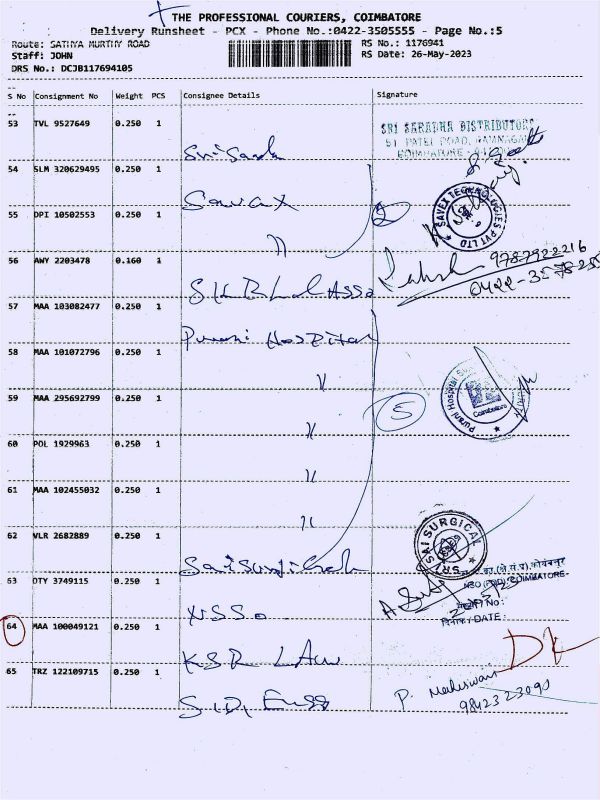 THE PROFESSIONAL COURIERS, COIMBATORE
Delivery Runsheet - PCX - Phone No.:0422-3505555 - Page No.:5
Route: SATHYA MURTHY ROAD RS No.: 1176941
Staff: JOHN RS Date: 26-May-2023
DRS No.: DCJB117694105
S No Consignment No Weight PCS Consignee Details Signature
53 TVL 9527649 0.250 1
SRI SARADHA DISTRIBUTORS
51 PATEL ROAD, RAMNAGAR
COIMBATORE
54 SLM 320629495 0.250 1
Savex
SAVEX TECHNOLOGIES PVT LTD
55 DPI 10502553 0.250 1
"
2
56 AWY 2203478 0.160 1
9787922216
57 MAA 103082477 0.250 1
Purani Hospital
58 MAA 101072796 0.250 1
"
Purani Hospital
Coimbatore
59 MAA 295692799 0.250 1
"
5
60 POL 1929963 0.250 1
"
61 MAA 102455032 0.250 1
"
62 VLR 2682889 0.250 1
SRI SAI SURGICAL
63 DTY 3749115 0.250 1
NSSO
कोयंबत्तूर
COIMBATORE
No:
दिनांक/DATE:
64 MAA 100049121 0.250 1
KSR LAW
65 TRZ 122109715 0.250 1
P. Maheswari
9842323090